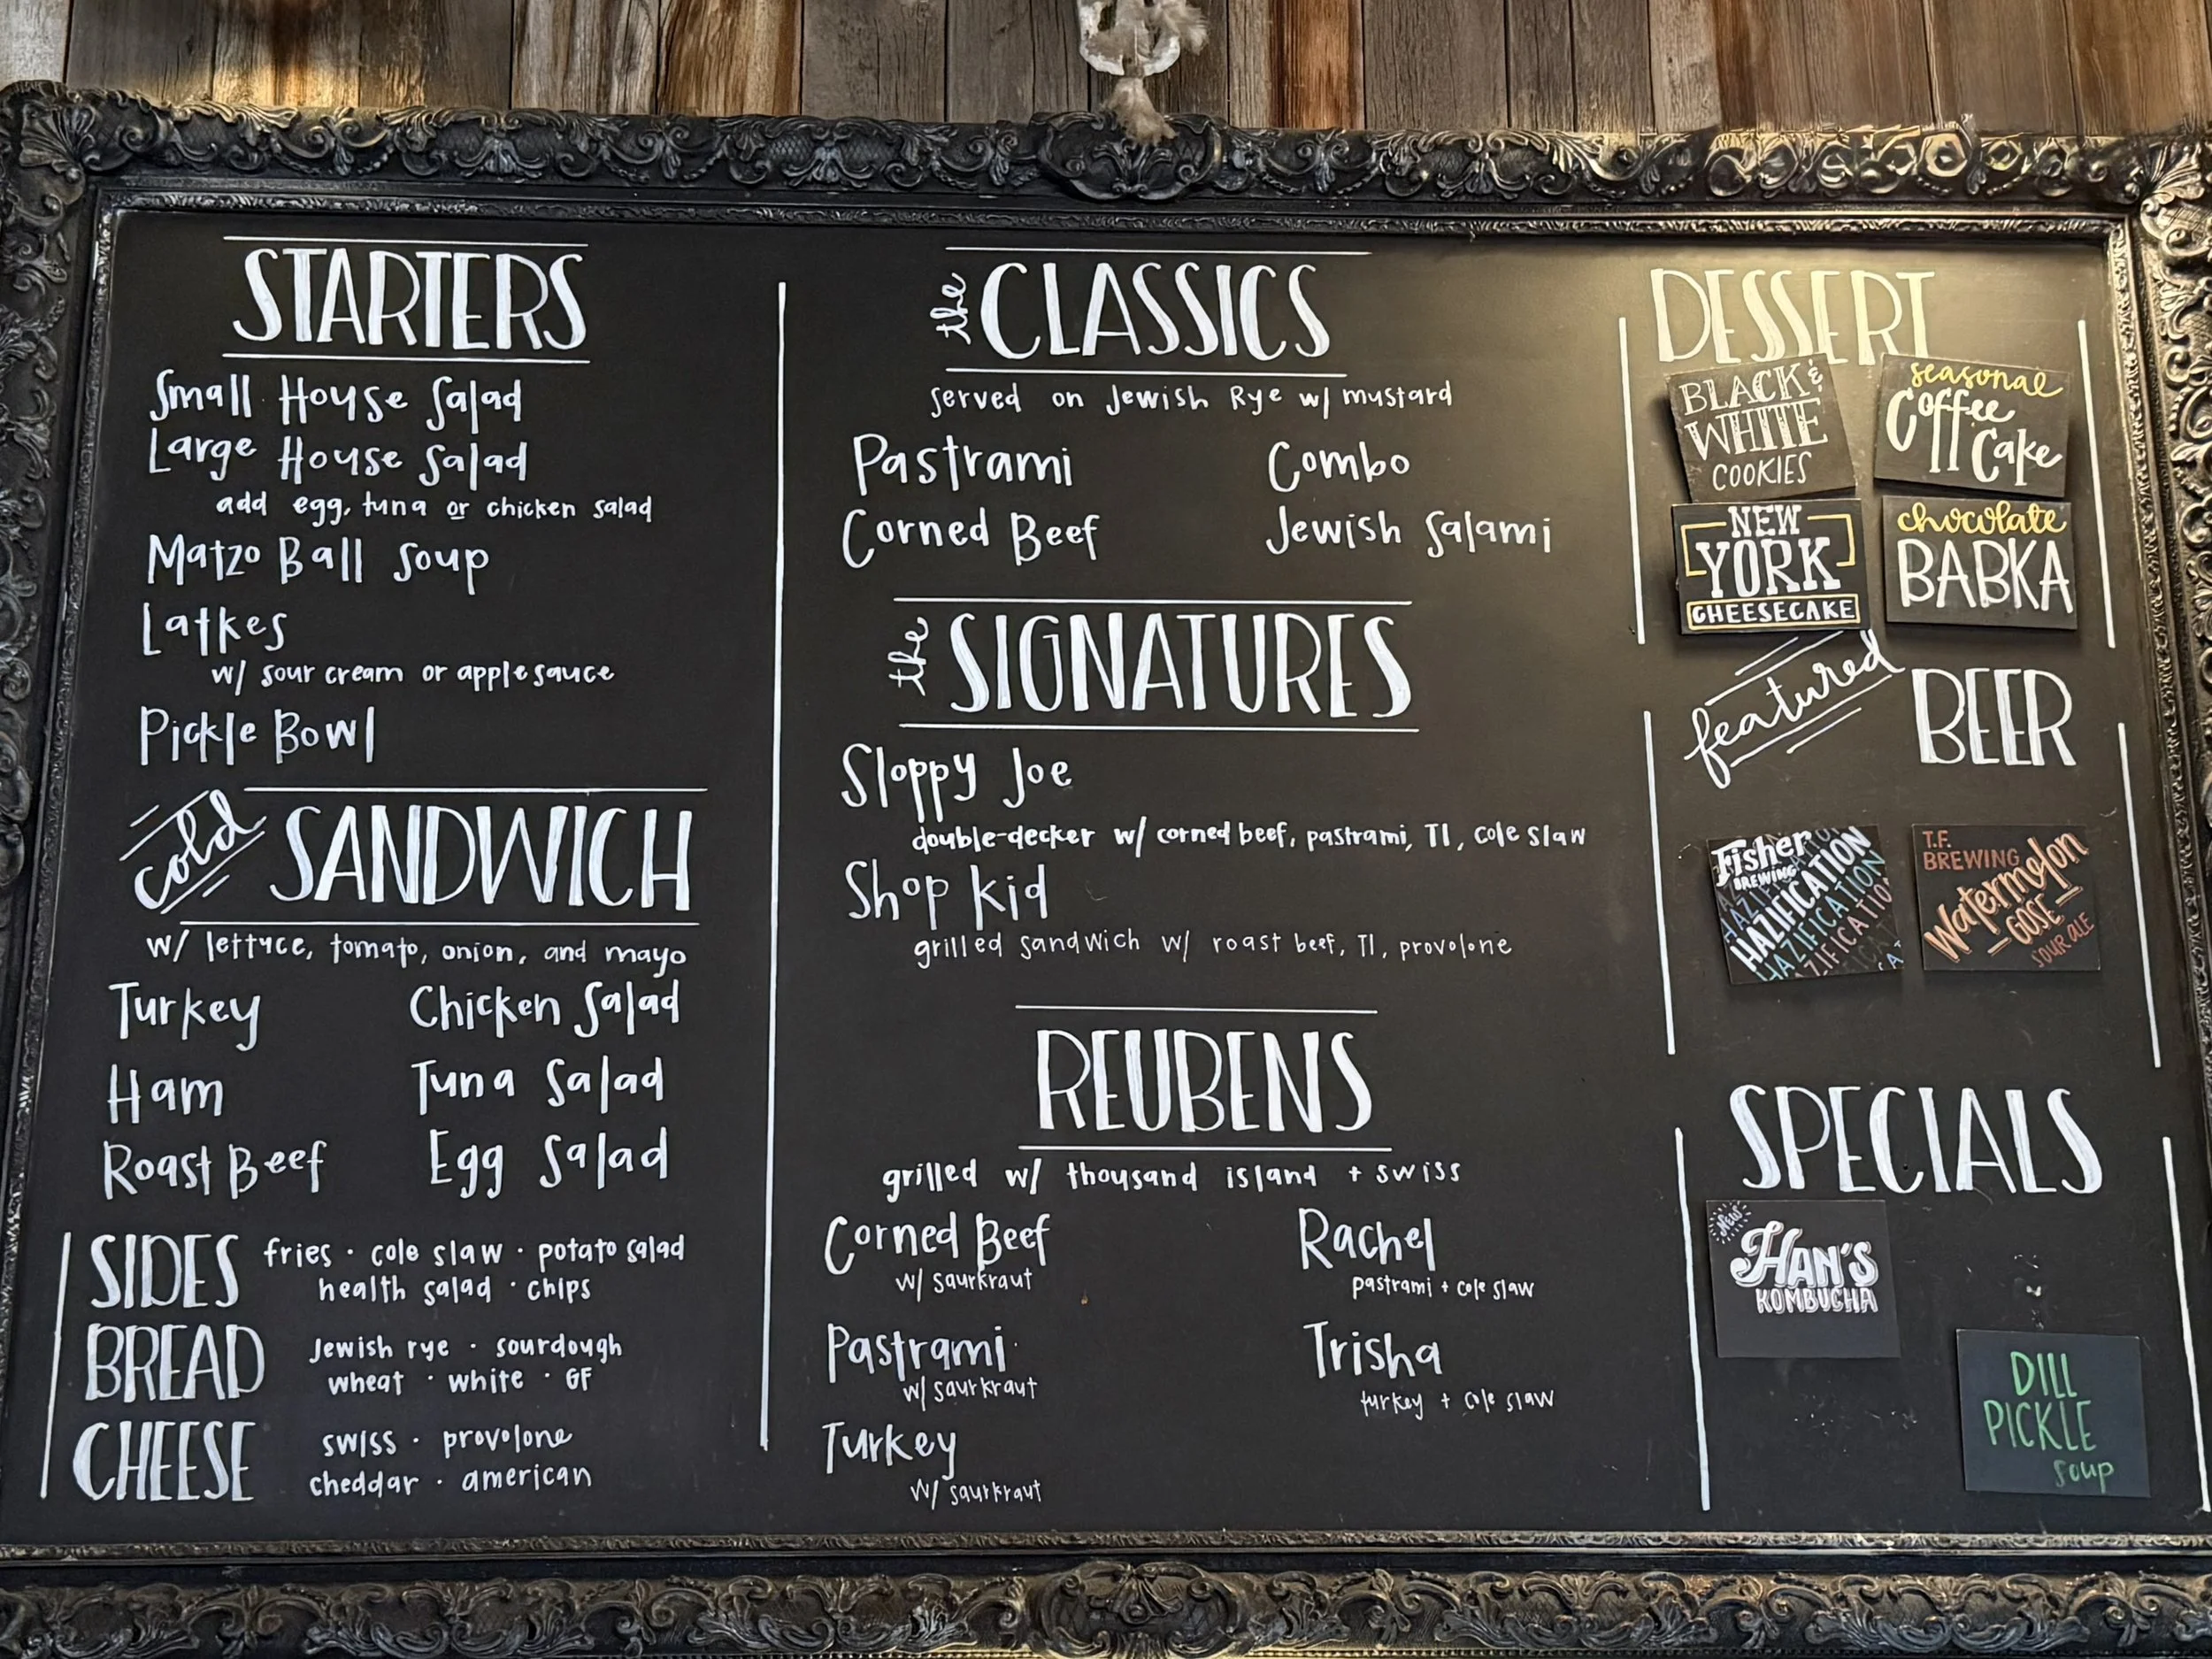 STARTERS
Small House Salad
Large House Salad
add egg, tuna or chicken salad
Matzo Ball Soup
Latkes
w/ sour cream or applesauce
Pickle Bowl
cold SANDWICH
w/ lettuce, tomato, onion, and mayo
Turkey Chicken Salad
Ham Tuna Salad
Roast Beef Egg Salad
SIDES fries · cole slaw · potato salad
health salad · chips
BREAD Jewish rye · sourdough
wheat · white · GF
CHEESE swiss · provolone
cheddar · american
the CLASSICS
served on Jewish Rye w/ mustard
Pastrami Combo
Corned Beef Jewish Salami
the SIGNATURES
Sloppy Joe
double-decker w/ corned beef, pastrami, TI, cole slaw
Shop Kid
grilled sandwich w/ roast beef, TI, provolone
REUBENS
grilled w/ thousand island + swiss
Corned Beef Rachel
w/ saurkraut pastrami + cole slaw
Pastrami Trisha
w/ saurkraut turkey + cole slaw
Turkey
w/ saurkraut
DESSERT
BLACK &
WHITE
COOKIES
seasonal
Coffee
Cake
NEW
YORK
CHEESECAKE
chocolate
BABKA
featured BEER
Fisher
BREWING
HAZIFICATION
HAZIFICATION
T.F.
BREWING
Watermelon
GOSE
SOUR ALE
SPECIALS
NEW
HAN'S
KOMBUCHA
DILL
PICKLE
soup